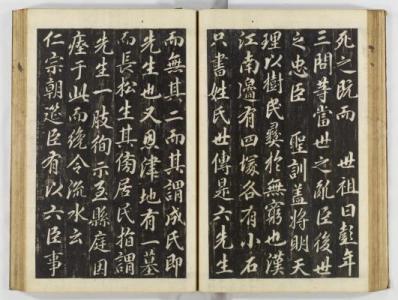 死之既而 世祖曰彭年
三問等當世之亂臣後世
之忠臣 聖訓盖將明天
理以樹民彝於無窮也漢
江南滸有四塚各有小石
只書姓氏世傳是六先生
而無其二而其謂成氏即
先生也又恩津地有一墓
而長松生其傍居民指謂
先生一肢徇示至縣庭因
瘞于此而令流水云
仁宗朝筵臣有以六臣事